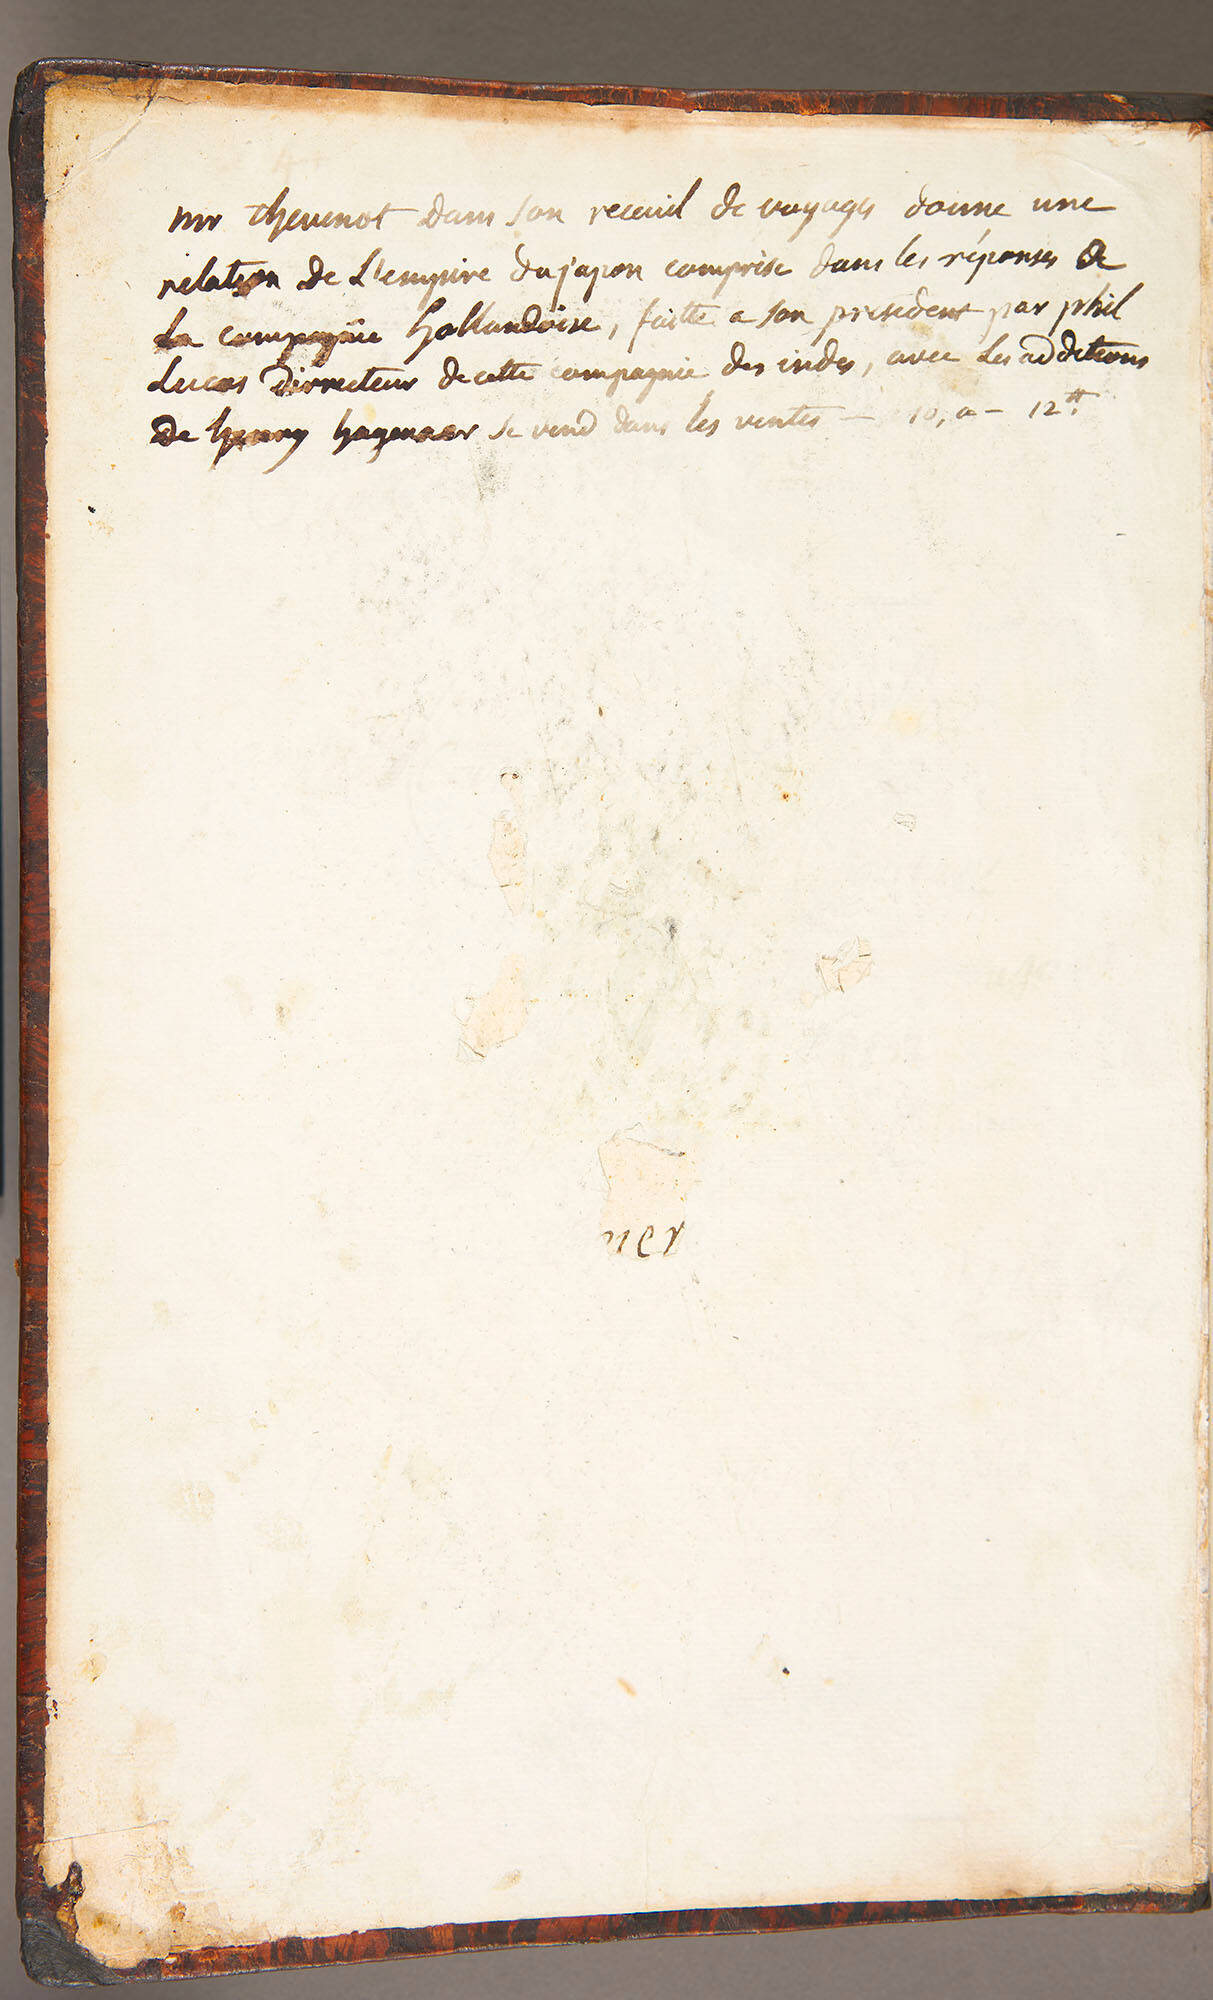 mr thevenot dans son receuil de voyages donne une
relation de L'empire du japon comprise dans les réponses de
La compagnie hollandoise, faitte a son president par phil
Lucas Dirrecteur de cette compagnie des indes, avec Les additions
de henry hagenaar se vend dans les ventes — 10, a — 12ᵗᵗ
ner